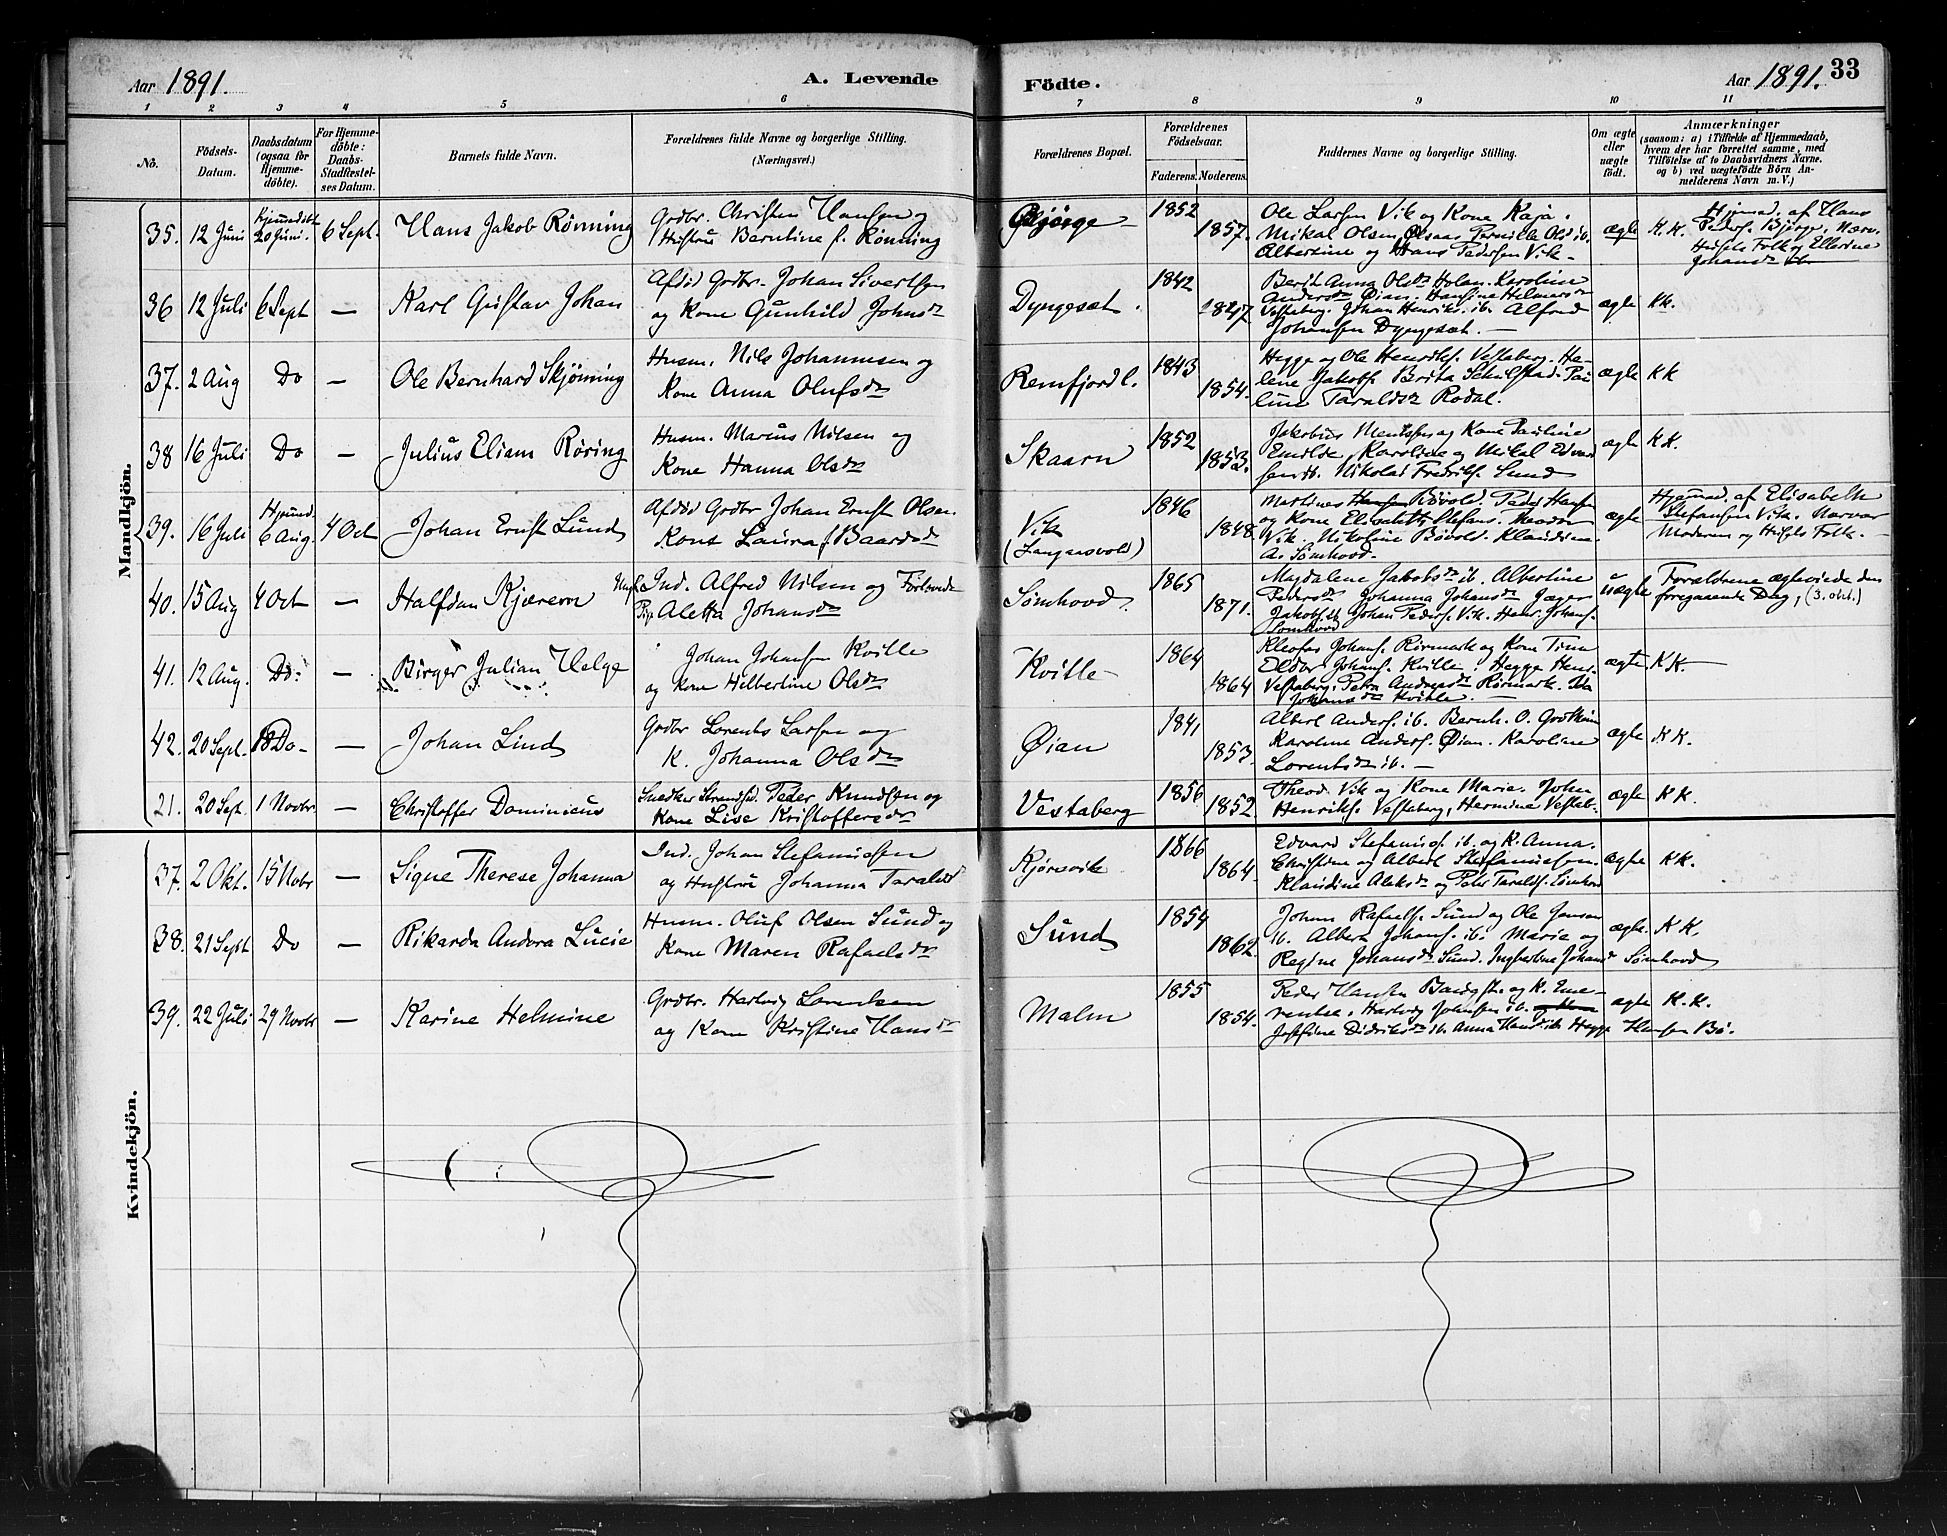 Aar 1891. A. Levende Födte. Aar 1891. 33
1 2 3 4 5 6 7 8 9 10 11
No.
Födsels-Datum.
Daabsdatum (ogsaa for Hjemme-döbte).
For Hjemme-döbte: Daabs-Stadfæstel-ses Datum.
Barnets fulde Navn.
Forældrenes fulde Navne og borgerlige Stilling. (Næringsvei.)
Forældrenes Bopæl.
Forældrenes Födselsaar. Faderens. Moderens.
Faddernes Navne og borgerlige Stilling.
Om ægte eller uægte födt.
Anmærkninger
(saasom: a) i Tilfælde af Hjemmedaab,
hvem der har forrettet samme, med
Tilföielse af to Daabsvidners Navne.
og b) ved uægtefödte Börn An-
melderens Navn m. V.)
Mandkjön.
35. 12 Juni Hjemmedöbt 20 Juni. 6 Sept. Hans Jakob Rönning
Grdbr. Christen Hansen og
Hustru Berntine f. Rönning
Bjørge 1852 1857.
Ole Larsen Vik og Kone Kaja.
Mikal Olsen, Pernille Olsd. ib.
Albertine og Hans Pedersen Vik.
ægte K.K.
Hjemmed. af Hans
Peders. Bjørge. Nærv.
Husets Folk og Ellerine
Johansd. ib.
36 12 Juli 6 Sept — Karl Gustav Johan
Afdöd Grdbr. Johan Sivertsen
og Kone Gunhild Johnsdr
Dyngesæt. 1842 1847
Berit Anna Olsdr Holan. Karoline
Andersdr Øian. Hansine Helmersdr
Vestaberg. Johan Henriks. ib. Alfred
Johansen Dyngesæt. —
ægte KK.
37. 2 Aug Do — Ole Bernhard Skjönning
Husm. Nils Johannesen og
Kone Anna Olufsdr
Remfjord l. 1843 1854.
Hegge og Ole Henriks. Vestaberg. He-
lene Jakobs. Berita Pau
line Taraldsdr Rodal.
ægte KK
38 16 Juli Do — Julius Eliam Röring
Husm. Marcus Nilsen og
Kone Hanna Olsdr
Skaarn 1852 1853.
Jakobus Mentsen og Kone Pauline
Emilde, Karoline og Mikal Edvard
sen ib. Nikolai Fredriks. Sund
ægte KK.
39. 16 Juli Hjemd. 6 Aug. 4 Oct Johan Ernst Lund
Afdöd Grdbr Johan Ernst Olsen.
Kone Laura f Baardsdr
Vik (Langaasvold) 1846 1848
Martines Bövold. Peder Hansen
og Kone Elisabeth Stefans.
Vik. Nikoline Bövold. Klaudina
A. Sömhovd.
ægte
Hjemmed. af Elisabeth
Stefansen Vik. Nærvær
Moderen og Husets Folk. —
40. 15 Aug 4 Oct — Halfdan Kjærem
Ungk. Ind. Alfred Nilsen og Forlovede
Pige Aletta Johansdr
Sömhovd. 1865 1871.
Magdalene Jakobsdr ib. Albertine
Pedersdr Johanna Johansdr Jæger
Jakobs. ib Johan Peders. Vik. Hans Johans.
Sömhovd
uægte
Forældrene ægteviede den
foregaaende Dag, (3. okt.)
41. 12 Aug. Do. — Birger Julian Helge
Johan Johansen Kville
og Kone Hilbertine Olsdr
Kville 1864 1864
Kleofas Johans. Rörmark og Kone Tina
Eldor Johans. Kville, Hegge Hen.
Vestaberg. Petra Andreasdr Rörmark. Ida
Johansdr Kville. —
ægte KK —
42. 20 Sept. 18 Do — Johan Lind
Grdbr Lorents Larsen og
K. Johanna Olsdr
Øian 1841 1853.
Albert Anders. ib. Bernh. O.
Karoline Anders. Øian. Karoline
Lorentsdr ib. —
ægte KK.
21. 20 Sept. 1 Novbr. — Christoffer Dominicus
Snedker Strandsid. Peder Knudsen og
Kone Lise Kristoffersdr
Vestaberg 1856 1852
Theod. Vik og Kone Marie. John
Henriks. Vestaberg, Hermine Vestab.
ægte KK.
Kvindekjön.
37. 2 Okt. 15 Novbr — Signe Therese Johanna
Ind. Johan Stefanusen
og Hustru Johanna Taraldsd
Kjörsvik 1866 1864.
Edvard Stefanus. ib. og K. Anna.
Christine og Albert Stefanusen.
Klaudine Aleksdr og Peter Taralds. Sömhovd
ægte KK.
38. 21 Sept Do — Rikarda Andora Lucie
Husm. Oluf Olsen Sund og
Kone Maren Rafaelsdr
Sund 1854 1862.
Johan Rafaels. Sund og Ole Jensen
ib. Albert Johans. ib. Marie og
Regine Johansdr Sund. Ingbertine Johansd Sömhovd
ægte. KK.
39. 22 Juli 29 Novbr — Karine Helmine
Grdbr. Hartvig Lorentsen
og Kone Kristine Hansdr
Malm 1855 1854.
Peder Hansen og K. Eme-
rentse. Hartvig Johnsen ib.
Josefine Didriksdr ib. Anna Hansd ib. Hegge Hansen Bö.
ægte K.K.